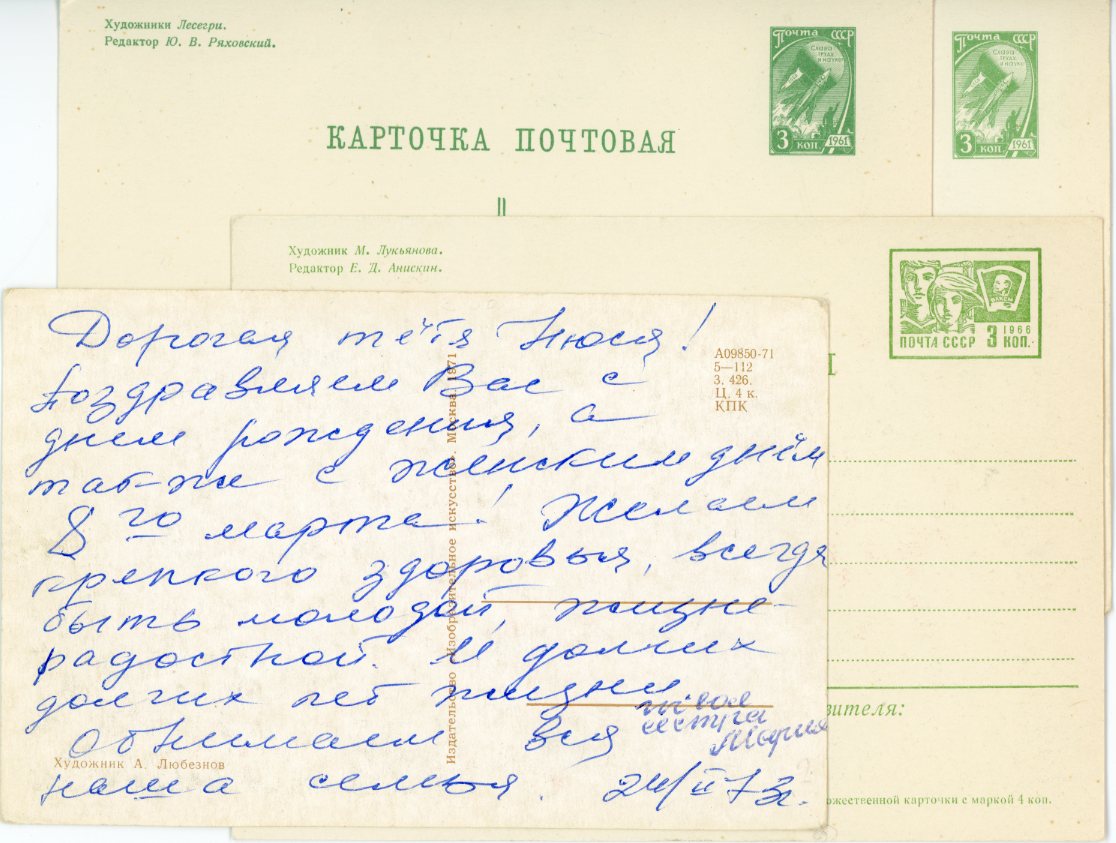 Художники Лесегри.
Редактор Ю. В. Ряховский.
КАРТОЧКА ПОЧТОВАЯ
ПОЧТА СССР
СЛАВА
ТРУДУ
И НАУКЕ
3 КОП. 1961
ПОЧТА СССР
СЛАВА
ТРУДУ
И НАУКЕ
3 КОП. 1961
Художник М. Лукьянова.
Редактор Е. Д. Анискин.
ВЛКСМ
1966
ПОЧТА СССР 3 КОП.
Дорогая тётя Нюся!
Поздравляем Вас с
днем рождения, а
так-же с женским днём
8го марта! Желаем
крепкого здоровья, всегда
быть молодой, жизне-
радостной. И долгих
долгих лет жизни
Обнимаем вся
наша семья. 24/II 73г.
сестра
Мария
А09850-71
5—112
З. 426.
Ц. 4 к.
КПК
Издательство «Изобразительное искусство». Москва. 1971
Художник А. Любезнов
вителя:
ожественной карточки с маркой 4 коп.